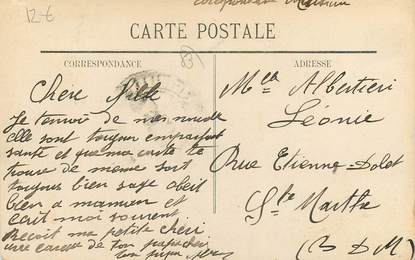 12 €
correspondance
CARTE POSTALE
CORRESPONDANCE
ADRESSE
(83)
Chere fille
Je t'envoie de mes nouvelle
elle sont toujour emparfait
santé et que ma carte te
trouve de meme soit
toujours bien sage obeit
bien a maman et
ecrit moi souvent
Recoit ma petite cheri
une caresse de ton papa cheri
ton
Mlle Albertieri
Léonie
Rue Etienne Dolet
Ste Marthe
(B D M)